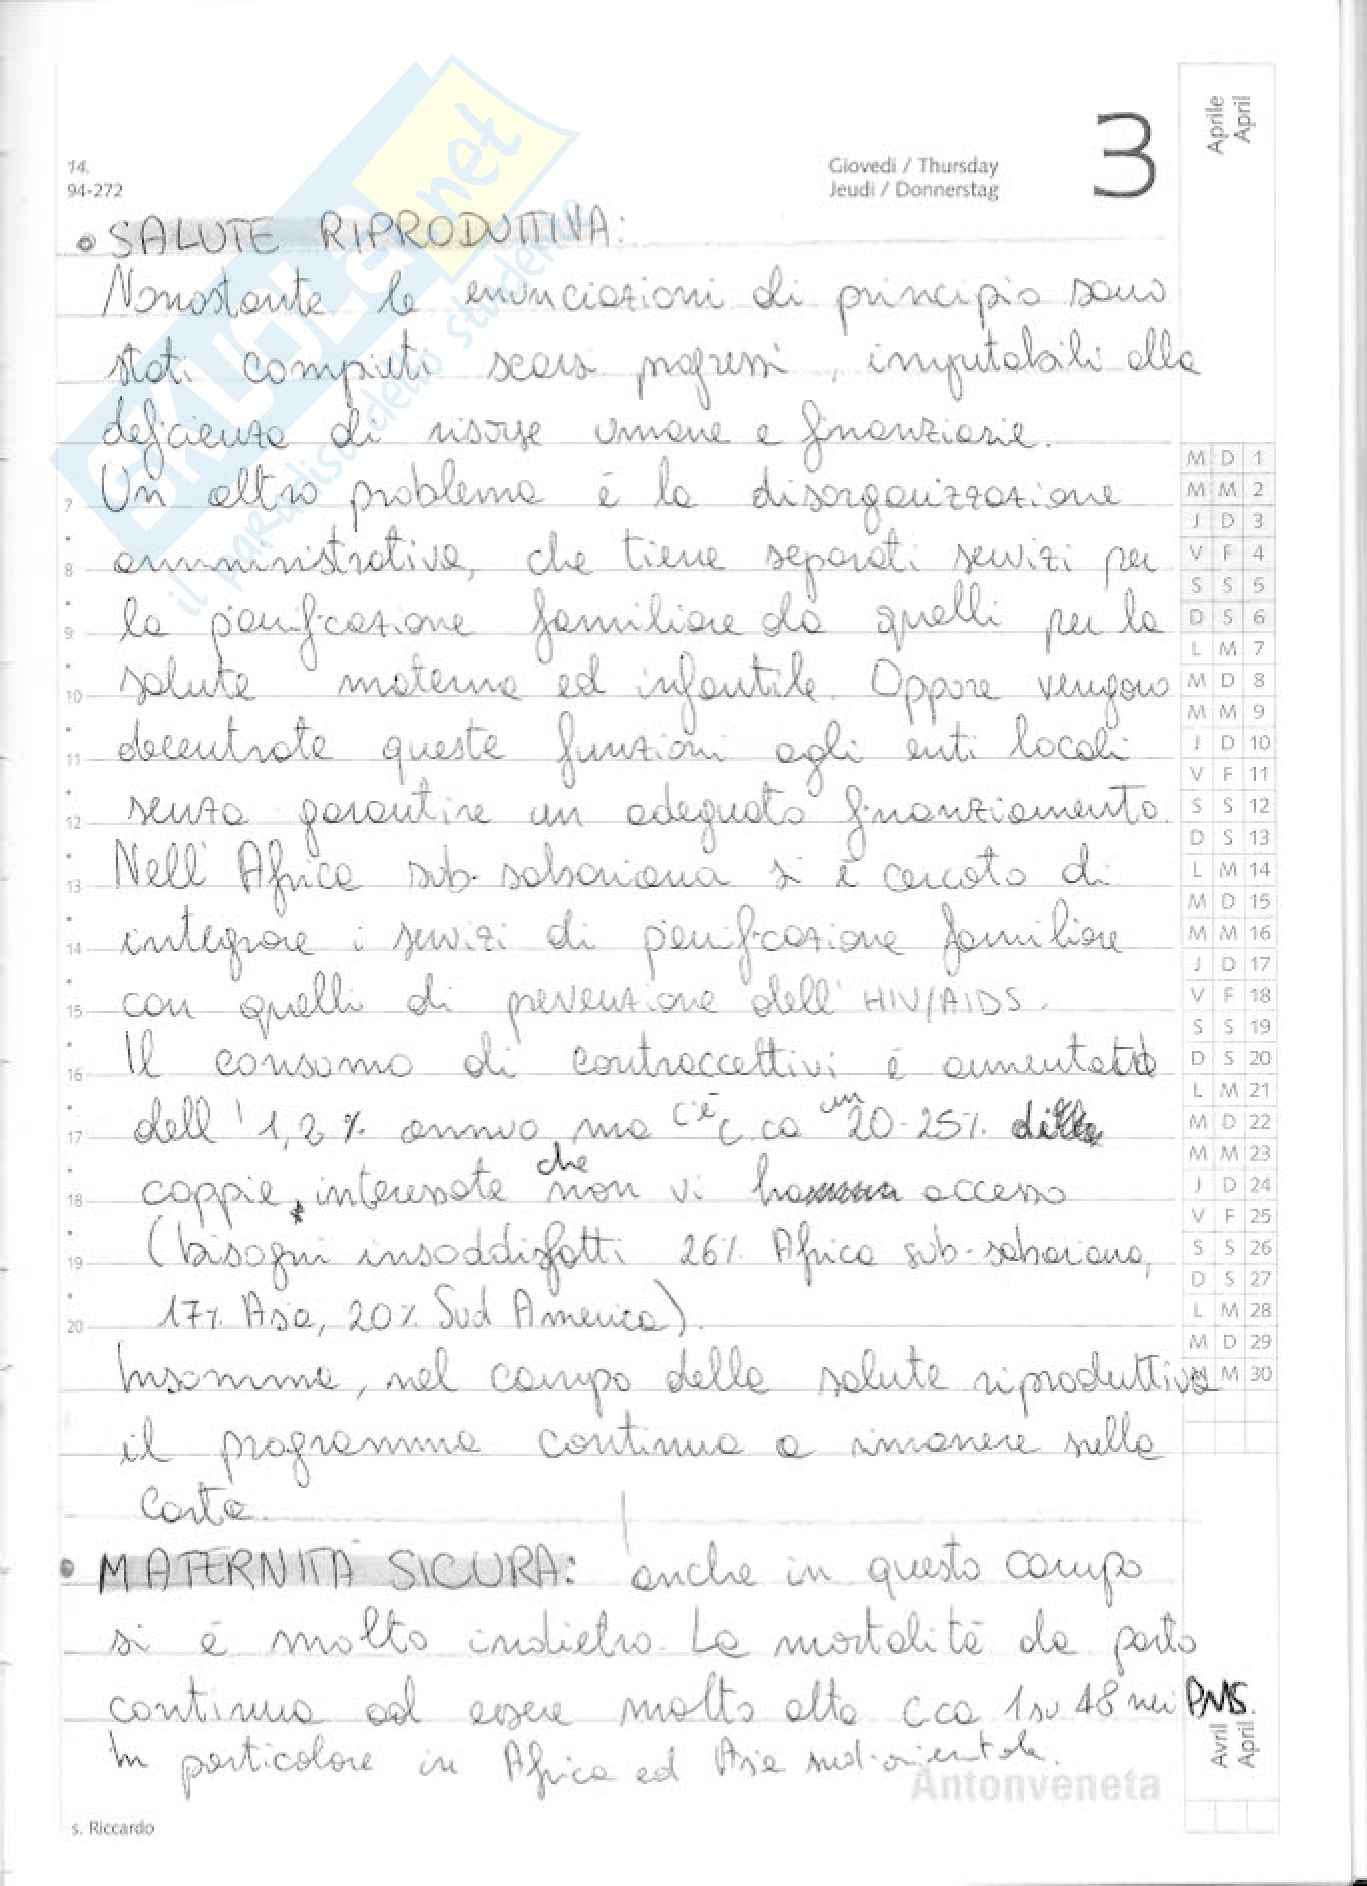 14.
94-272
Giovedì / Thursday
Jeudi / Donnerstag
3
Aprile
April
SKUOLA.net
il paradiso dello studente
• SALUTE RIPRODUTTIVA:
Nonostante le enunciazioni di principio sono
stati compiuti scarsi progressi, imputabili alla
deficienza di risorse umane e finanziarie.
Un altro problema è la disorganizzazione
amministrativa, che tiene separati servizi per
la pianificazione familiare da quelli per la
salute materna ed infantile. Oppure vengono
decentrate queste funzioni agli enti locali
senza garantire un adeguato finanziamento.
Nell'Africa sub-sahariana si è cercato di
integrare i servizi di pianificazione familiare
con quelli di prevenzione dell'HIV/AIDS.
Il consumo di contraccettivi è aumentato
dell'1,2% annuo ma c'è c.ca un 20-25% di
coppie interessate che non vi ha accesso
(bisogni insoddisfatti 26% Africa sub-sahariana,
17% Asia, 20% Sud America).
Insomma, nel campo della salute riproduttiva
il programma continua a rimanere sulla
carta.
• MATERNITÀ SICURA: anche in questo campo
si è molto indietro. La mortalità da parto
continua ad essere molto alta c.ca 1 su 48 nei PMS.
In particolare in Africa ed Asia sud-orientale.
7
8
9
10
11
12
13
14
15
16
17
18
19
20
M D 1
M M 2
J D 3
V F 4
S S 5
D S 6
L M 7
M D 8
M M 9
J D 10
V F 11
S S 12
D S 13
L M 14
M D 15
M M 16
J D 17
V F 18
S S 19
D S 20
L M 21
M D 22
M M 23
J D 24
V F 25
S S 26
D S 27
L M 28
M D 29
M 30
Avril
April
Antonveneta
s. Riccardo